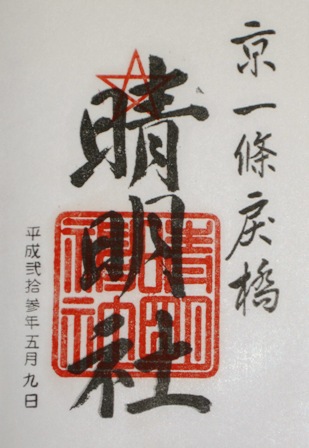 京一條戻橋
晴明社
平成弐拾参年五月九日